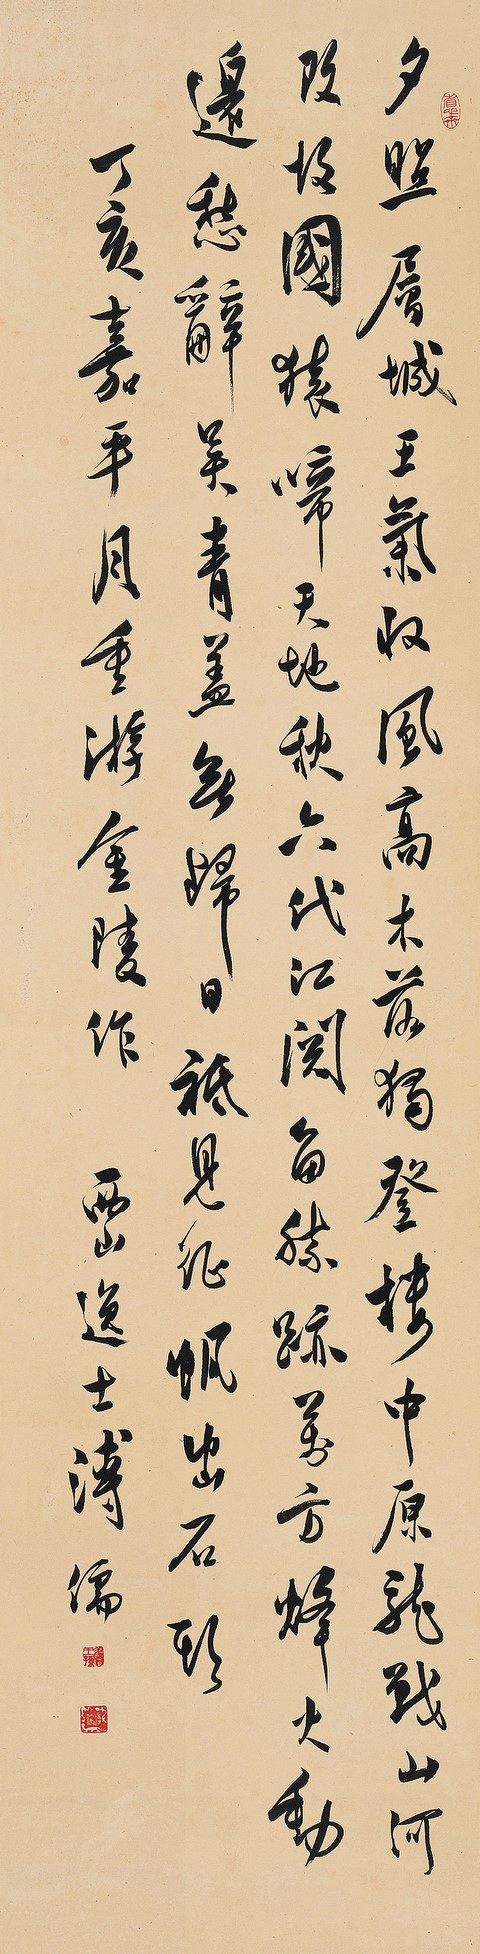 夕照層城王氣收風高木落獨登樓中原龍戰山河
改故國猿啼天地秋六代江関留勝跡萬方烽火動
邊愁辭吴青蓋無歸日祗見征帆出石頭
丁亥嘉平月重游金陵作　西山逸士溥儒